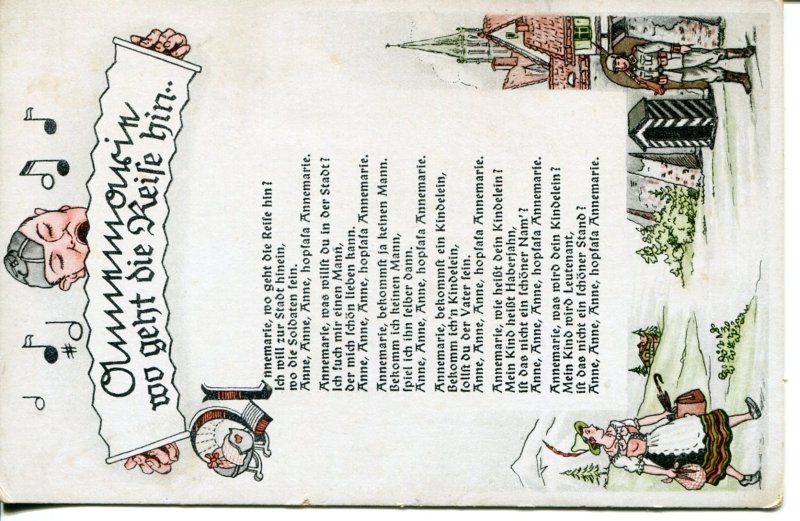 Annemarie
wo geht die Reise hin..
Annemarie, wo geht die Reise hin?
Ich will zur Stadt hinein,
wo die Soldaten sein.
Anne, Anne, Anne, hopsasa Annemarie.
Annemarie, was willst du in der Stadt?
Ich such mir einen Mann,
der mich schön lieben kann.
Anne, Anne, Anne, hopsasa Annemarie.
Annemarie, bekommst ja keinen Mann.
Bekomm ich keinen Mann,
spiel ich ihn selber dann.
Anne, Anne, Anne, hopsasa Annemarie.
Annemarie, bekommst ein Kindelein,
Bekomm ich'n Kindelein,
sollst du der Vater sein.
Anne, Anne, Anne, hopsasa Annemarie.
Annemarie, wie heißt dein Kindelein?
Mein Kind heißt Haberjahn,
ist das nicht ein schöner Nam'?
Anne, Anne, Anne, hopsasa Annemarie.
Annemarie, was wird dein Kindelein?
Mein Kind wird Leutenant,
ist das nicht ein schöner Stand?
Anne, Anne, Anne, hopsasa Annemarie.